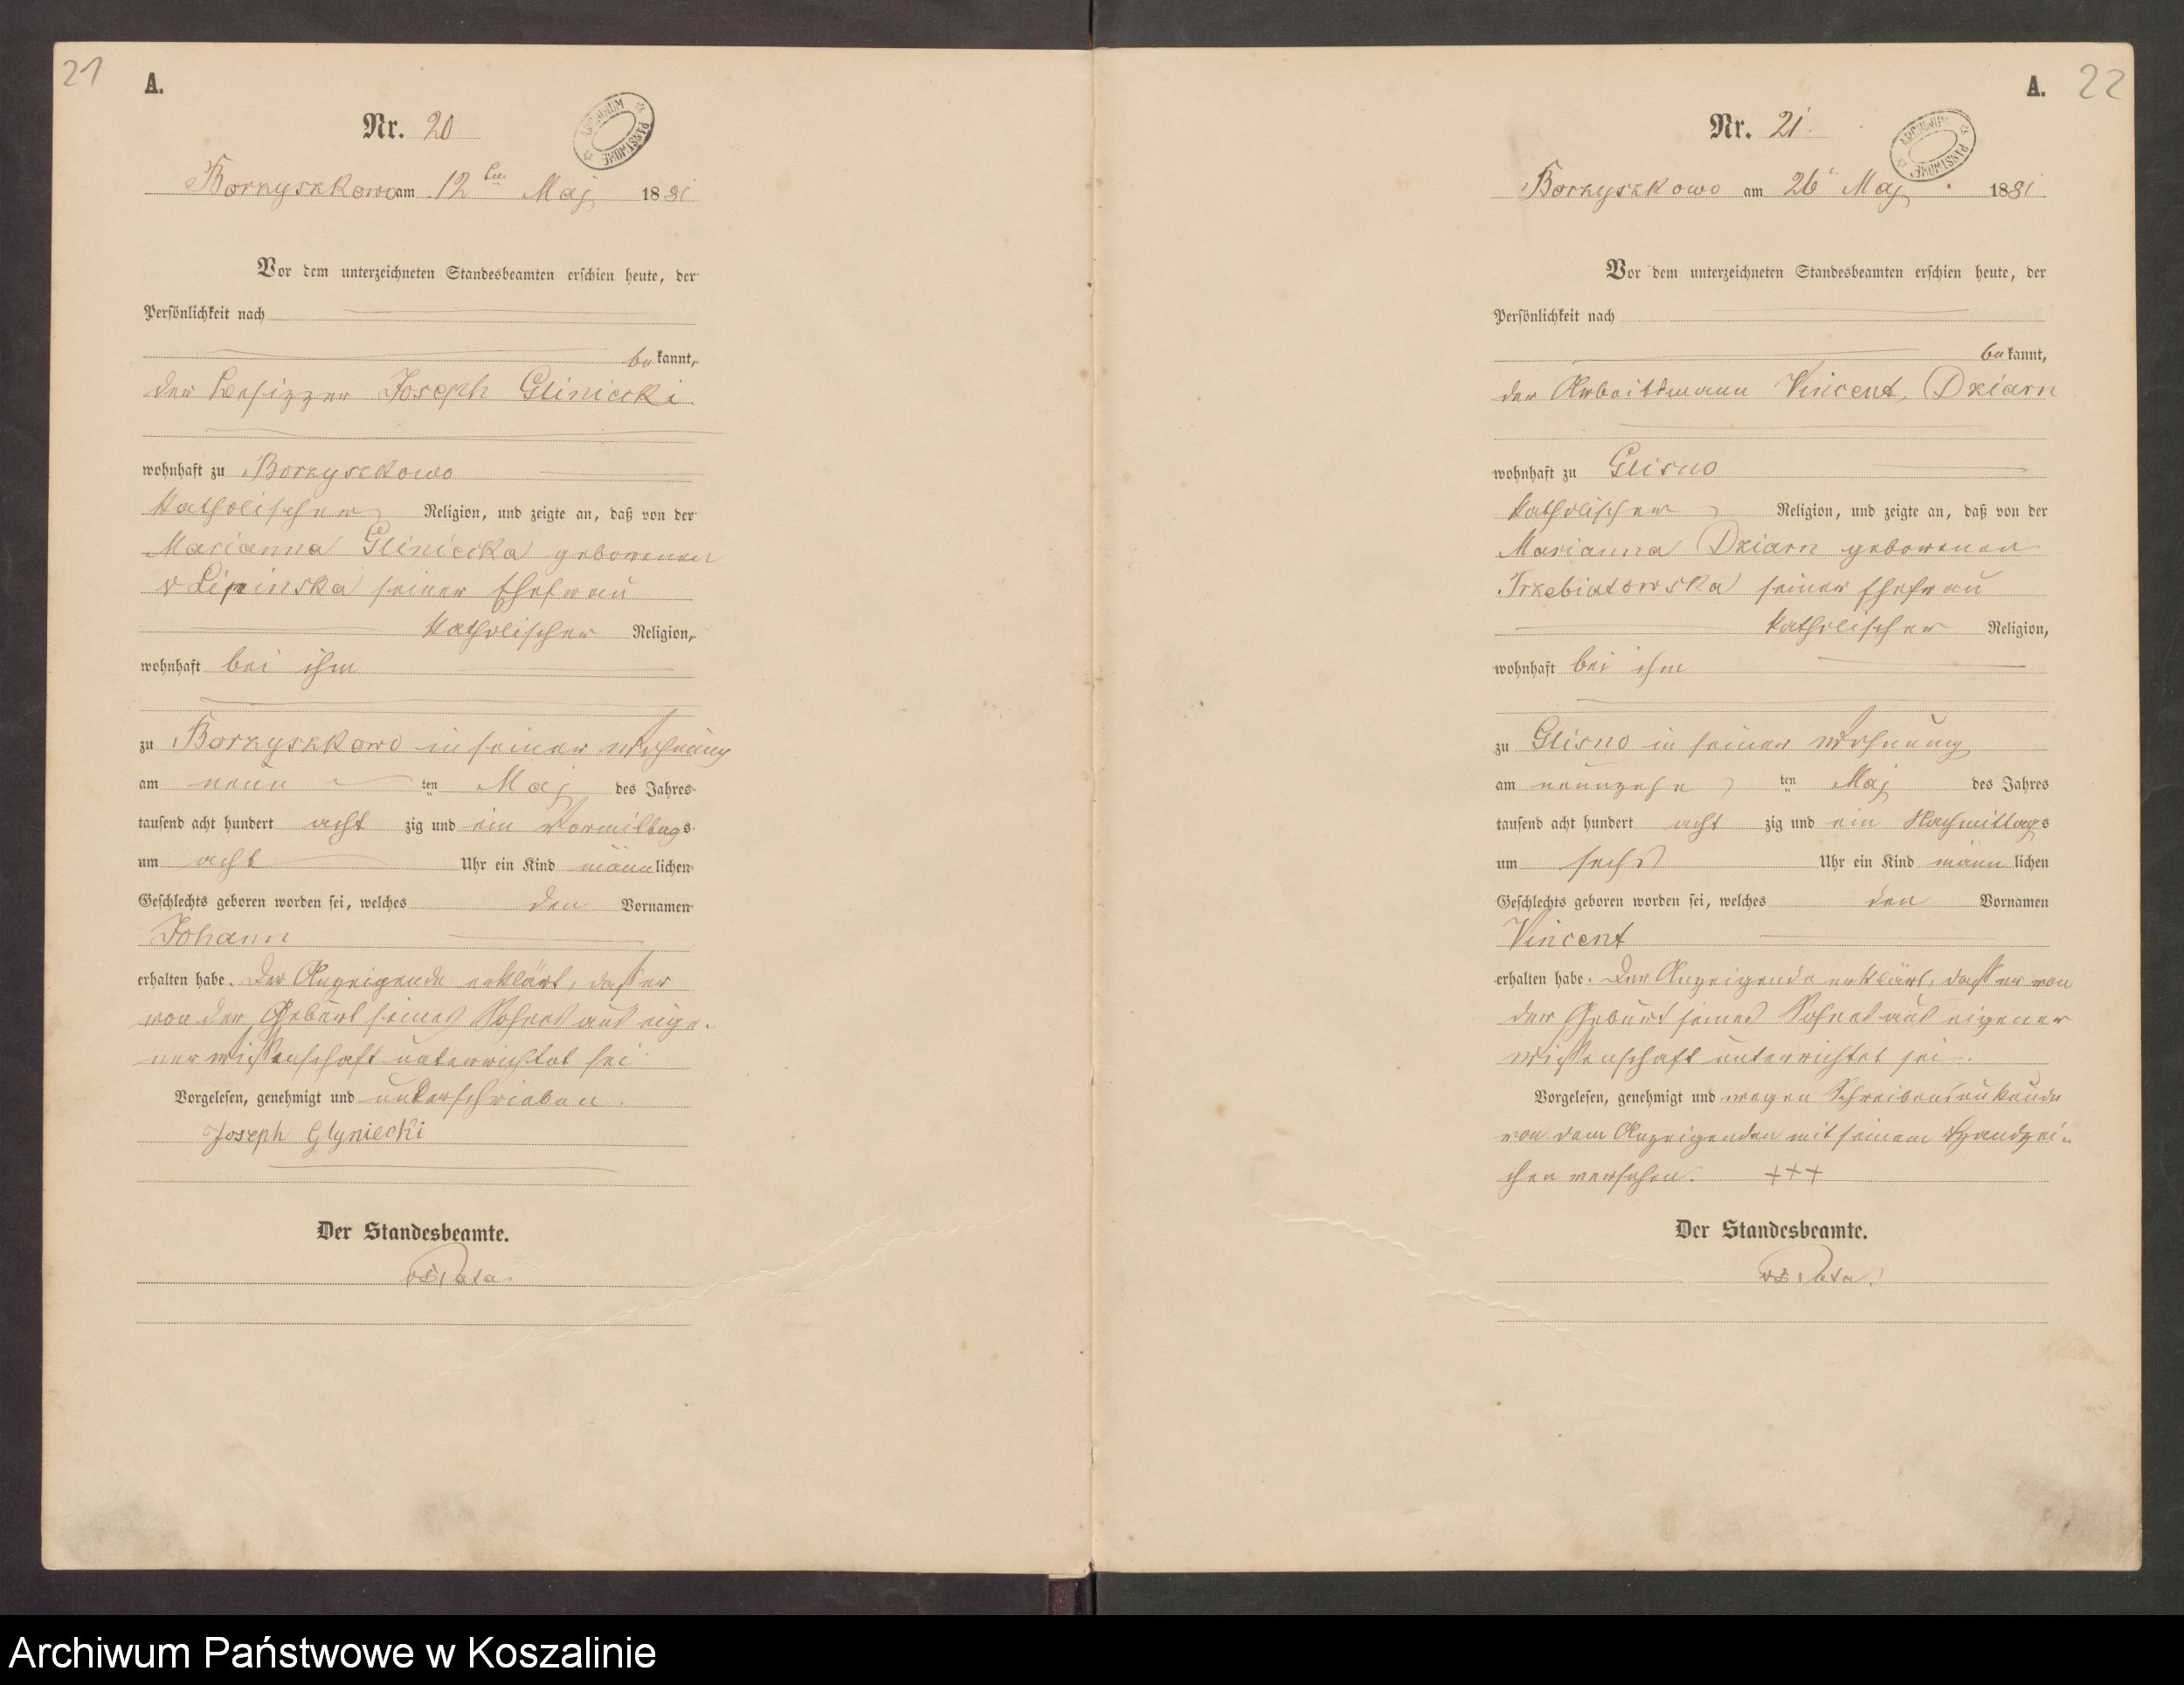 21
A.
Nr. 20
ARCHIWUM PAŃSTWOWE
Borzyszkowo am 12ten Maj 1881
Vor dem unterzeichneten Standesbeamten erschien heute, der
Persönlichkeit nach
bekannt,
der Besizzer Joseph Gliniecki
wohnhaft zu Borzyszkowo
katholischer Religion, und zeigte an, daß von der
Marianna Gliniecka geborenen
v Lipinska seiner Ehefrau
katholischer Religion,
wohnhaft bei ihm
zu Borzyszkowo in seiner Wohnung
am neun ten Maj des Jahres
tausend acht hundert acht zig und ein Vormittags
um acht Uhr ein Kind männlichen
Geschlechts geboren worden sei, welches den Vornamen
Johann
erhalten habe. Der Anzeigende erklärt, daß er
von der Geburt seines Sohnes aus eige-
ner Wißenschaft unterrichtet sei
Vorgelesen, genehmigt und unterschrieben.
Joseph Glyniecki
Der Standesbeamte.
A. 22
Nr. 21
ARCHIWUM PAŃSTWOWE
Borzyszkowo am 26 Maj 1881
Vor dem unterzeichneten Standesbeamten erschien heute, der
Persönlichkeit nach
bekannt,
der Arbeitsmann Vincent Dziarn
wohnhaft zu Glisno
katholischer Religion, und zeigte an, daß von der
Marianna Dziarn geborenen
Trzebiatowska seiner Ehefrau
katholischer Religion,
wohnhaft bei ihm
zu Glisno in seiner Wohnung
am neunzehn ten Maj des Jahres
tausend acht hundert acht zig und ein Nachmittags
um sechs Uhr ein Kind männlichen
Geschlechts geboren worden sei, welches den Vornamen
Vincent
erhalten habe. Der Anzeigende erklärt, daß er von
der Geburt seines Sohnes aus eigener
Wißenschaft unterrichtet sei.
Vorgelesen, genehmigt und wegen Schreibensunkunde
von dem Anzeigenden mit seinem Handzei-
chen versehen. +++
Der Standesbeamte.
Archiwum Państwowe w Koszalinie